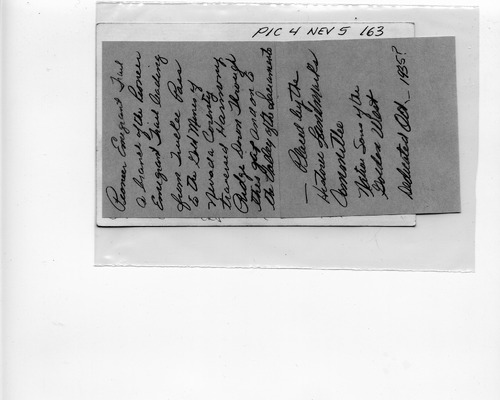 PIC 4 NEV 5 163
Pioneer Emigrant Trail
A branch of the Pioneer
Emigrant Trail leading
from Truckee Pass
to the Gold Mines of
Nevada County
traversed Harmony
Ridge from Through
this gap and on to
the Valley of the Sacramento
— Placed by the
Historic Landmarks
Committee
Native Sons of the
Golden West
Dedicated Oct. — 1935?